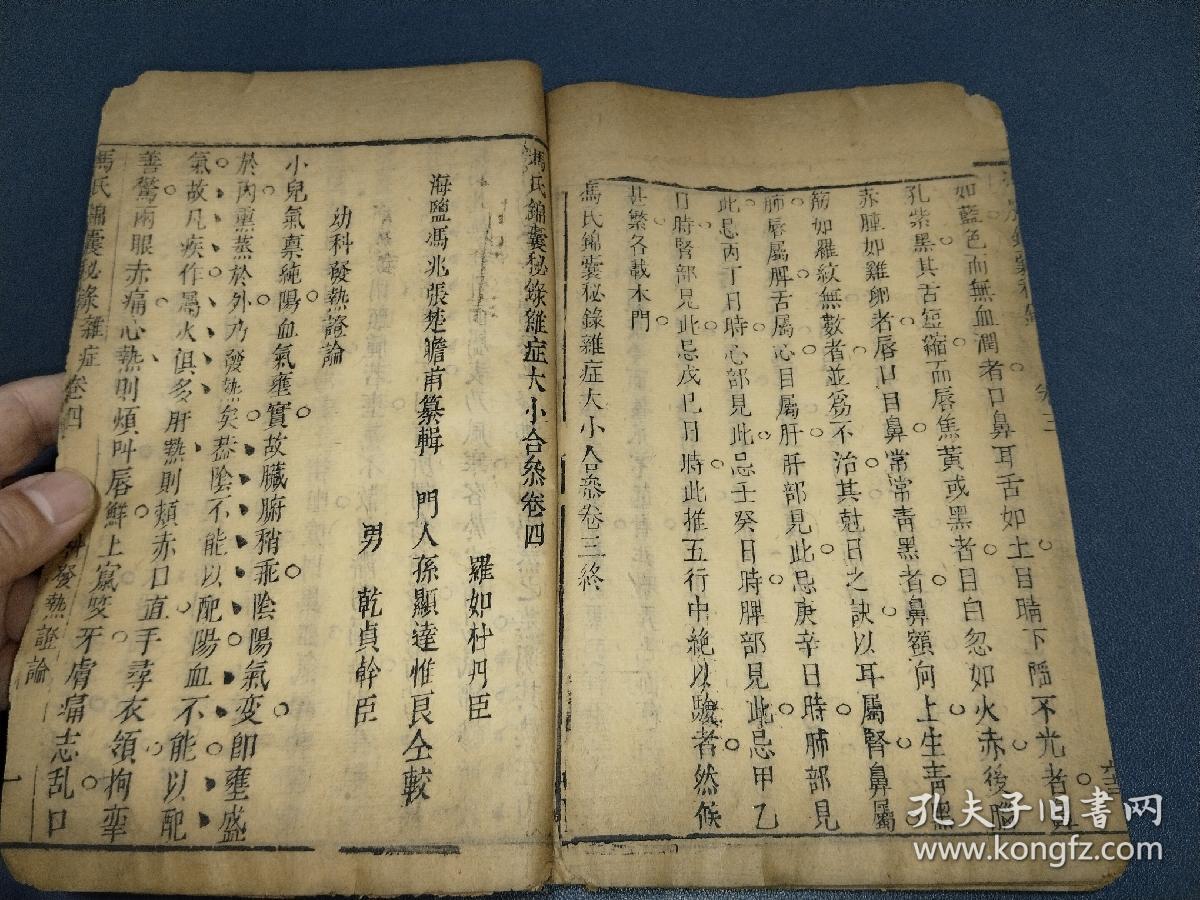 如藍色而無血潤者口鼻耳舌如土目睛下陷不光者
孔紫黑其舌短縮而唇焦黃或黑者目白忽如火赤後腦
赤腫如雞卵者唇口目鼻常常青黑者鼻額向上生青黑
筋如羅紋無數者並爲不治其尅日之訣以耳屬腎鼻屬
肺唇屬脾舌屬心目屬肝肝部見此忌庚辛日時肺部見
此忌丙丁日時心部見此忌壬癸日時脾部見此忌甲乙
日時腎部見此忌戊巳日時此推五行中絶以驗者然候
甚繁各載本門
馮氏錦囊秘錄雜症大小合叅卷三終
馮氏錦囊秘錄雜症大小合叅卷四
羅如桂丹臣
海鹽馮兆張楚瞻甫纂輯 門人孫顯達惟良仝較
男 乾貞幹臣
幼科發熱證論
小兒氣禀純陽血氣壅實故臟腑稍乖陰陽氣变卽壅盛
於內熏蒸於外乃發熱矣葢陰不能以配陽血不能以配
氣故凡疾作屬火俱多肝熱則頰赤口直手尋衣領拘攣
善驚兩眼赤痛心熱則煩叫唇鮮上竄咬牙膚痛志乱口
馮氏錦囊秘錄雜症 卷四 科發熱證論 一
孔夫子旧書网
www.kongfz.com